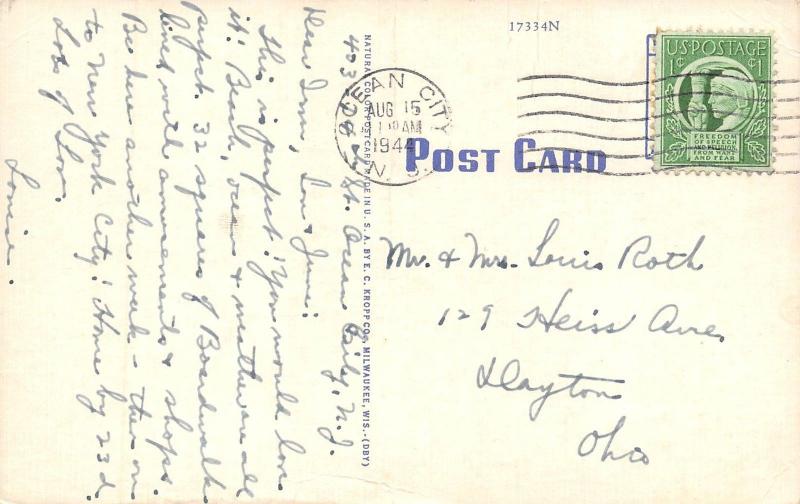 403 St. Ocean City, N.J.
Dear Irm, Lou & June:
This is perfect! You would love
it! Beach, ocean & weather are all
perfect. 32 squares of Boardwalk
lined with amusements & shops.
Be here another week - then on
to New York City! Home by 23d.
Lots of Love
Louise.
NATURAL COLOR POST CARD MADE IN U. S. A. BY E. C. KROPP CO., MILWAUKEE, WIS.-(DBY)
17334N
OCEAN CITY
AUG 15
AM
1944
N. J.
POST CARD
U.S. POSTAGE
1¢ ¢1
FREEDOM
OF SPEECH
AND RELIGION,
FROM WANT
AND FEAR
Mr. & Mrs. Louis Roth
129 Heiss Ave.
Dayton
Ohio